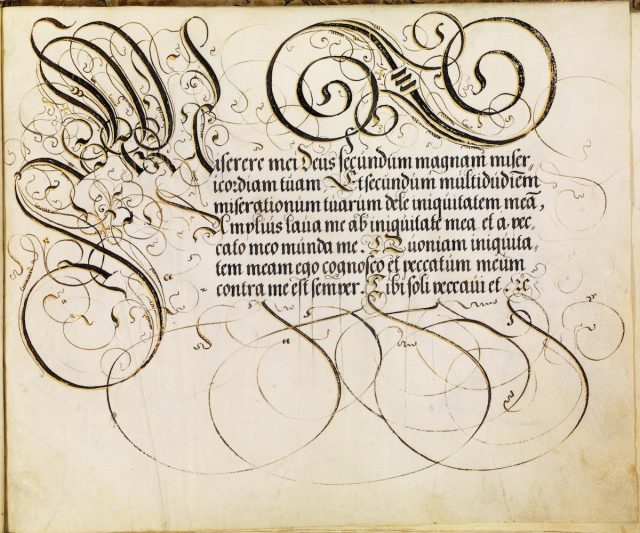 Miserere mei deus secundum magnam miser,
icordiam tuam Et secundum multidudiem
miserationum tuarum dele iniquitatem meā,
Amplius laua me ab iniquitate mea et a pec,
cato meo munda me. Quoniam iniquita,
tem meam ego cognosco et peccatum meum
contra me est semper. Tibi soli peccaui et